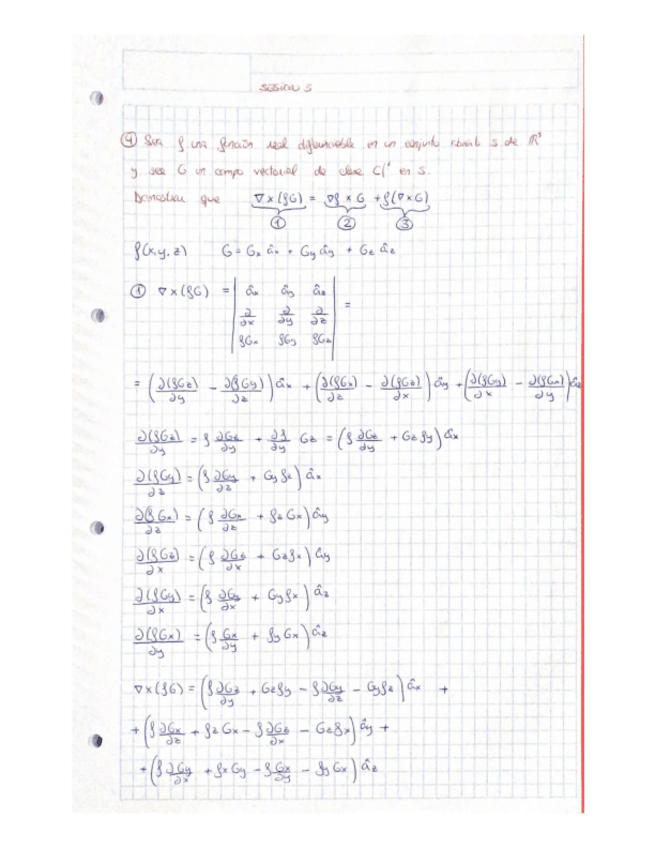 SESIÓN 5
④ Sea f una función real diferenciable en un conjunto abierto S de ℝ³
y sea G un campo vectorial de clase C¹ en S.
Demostrar que ∇×(fG) = ∇f × G + f(∇×G)
① ② ③
f(x,y,z) G = Gx âx + Gy ây + Gz âz
① ∇×(fG) = | âx ây âz |
| ∂/∂x ∂/∂y ∂/∂z | =
| fGx fGy fGz |
= (∂(fGz)/∂y − ∂(fGy)/∂z) âx + (∂(fGx)/∂z − ∂(fGz)/∂x) ây + (∂(fGy)/∂x − ∂(fGx)/∂y) âz
∂(fGz)/∂y = f ∂Gz/∂y + ∂f/∂y Gz = (f ∂Gz/∂y + Gz fy) âx
∂(fGy)/∂z = (f ∂Gy/∂z + Gy fz) âx
∂(fGx)/∂z = (f ∂Gx/∂z + fz Gx) ây
∂(fGz)/∂x = (f ∂Gz/∂x + Gz fx) ây
∂(fGy)/∂x = (f ∂Gy/∂x + Gy fx) âz
∂(fGx)/∂y = (f Gx/∂y + fy Gx) âz
∇×(fG) = (f ∂Gz/∂y + Gz fy − f ∂Gy/∂z − Gy fz) âx +
+ (f ∂Gx/∂z + fz Gx − f ∂Gz/∂x − Gz fx) ây +
+ (f ∂Gy/∂x + fx Gy − f Gx/∂y − fy Gx) âz